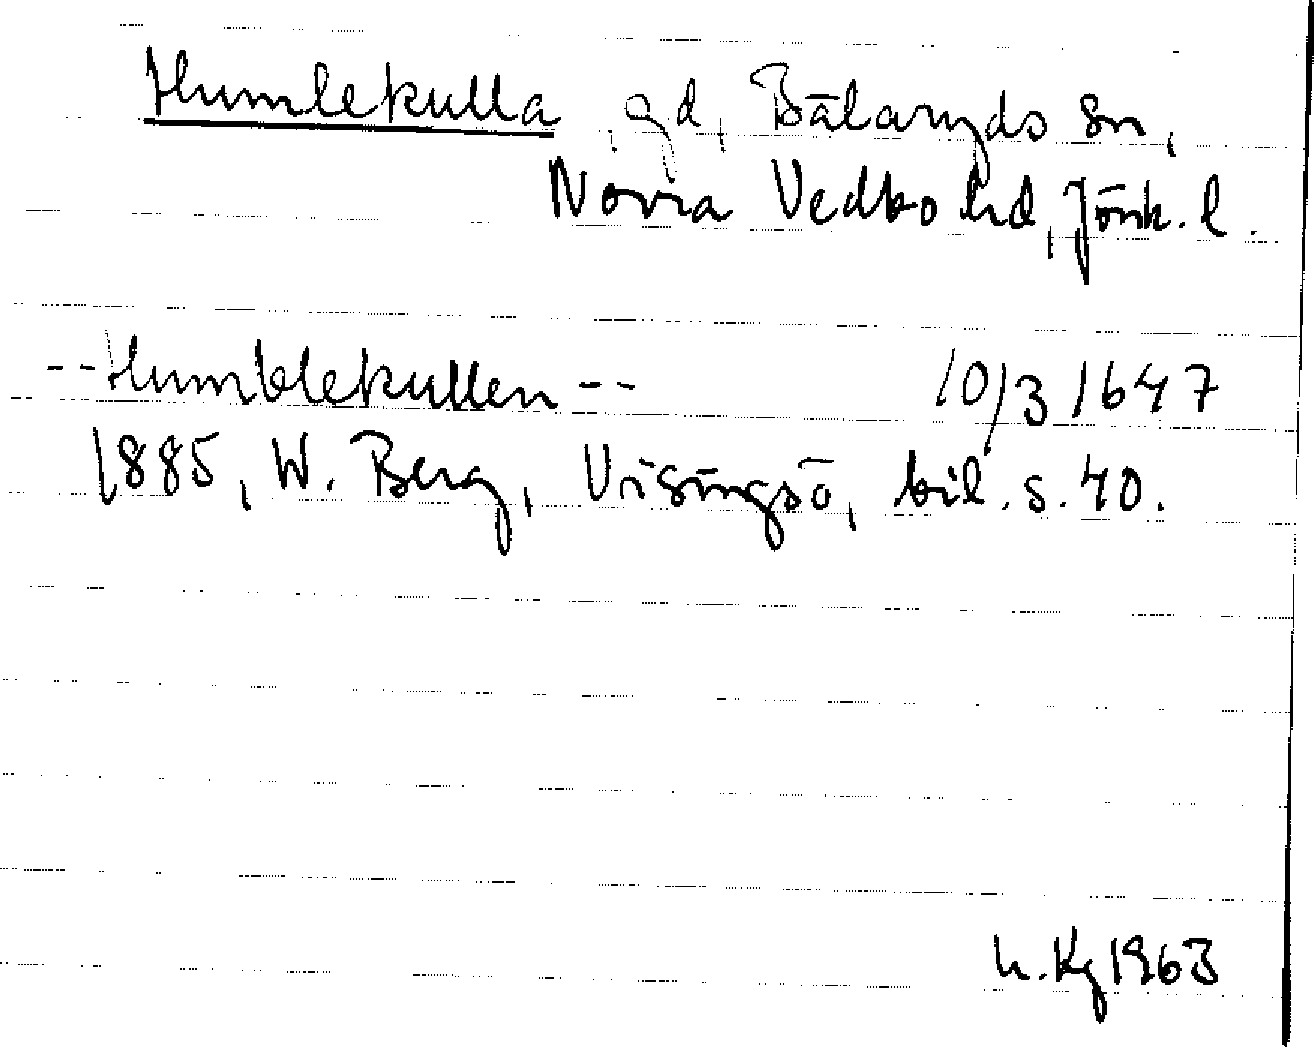 Humlekulla, gd, Bälaryds sn,
Norra Vedbo hd, Jönk. l.
--Humblekullen-- 10/3 1647
1885, W. Berg, Visingsö, bil. s. 40.
h. Kg 1963